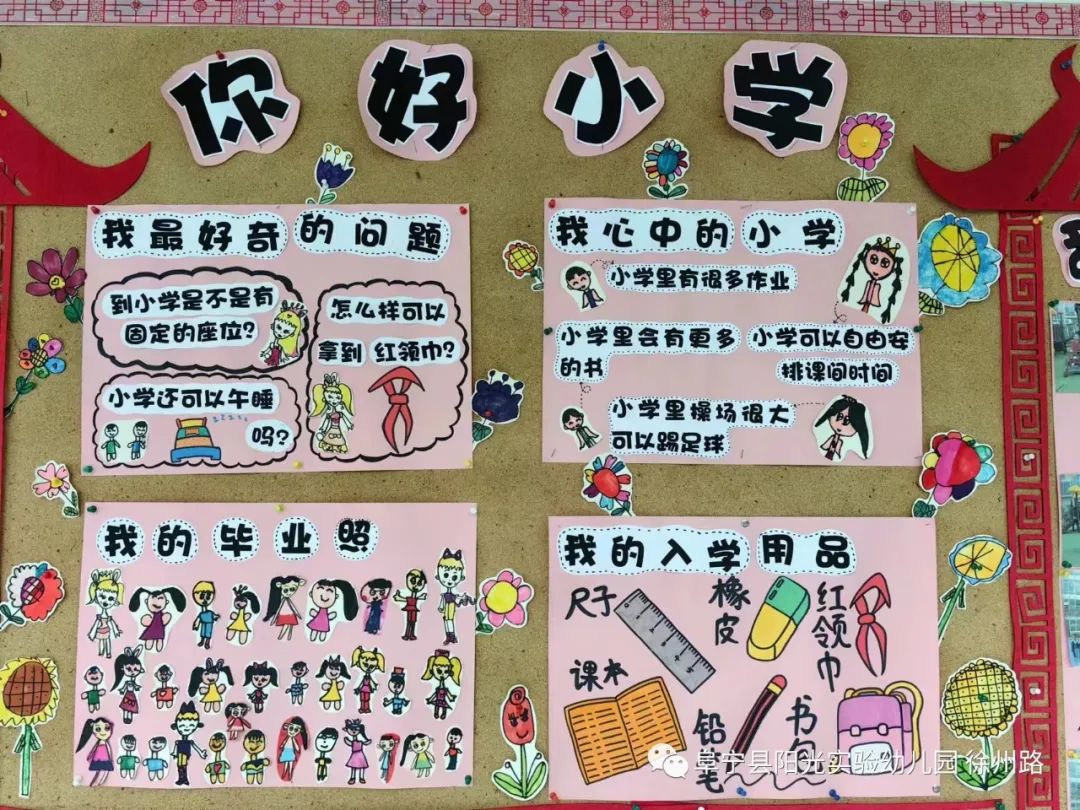 你好小学
我最好奇的问题
到小学是不是有
固定的座位?
怎么样可以
拿到 红领巾?
小学还可以午睡
吗?
我心中的小学
小学里有很多作业
小学里会有更多
的书
小学可以自由安
排课间时间
小学里操场很大
可以踢足球
我的毕业照
我的入学用品
尺子
橡皮
红领巾
课本
铅笔
书
阜宁县阳光实验幼儿园徐州路